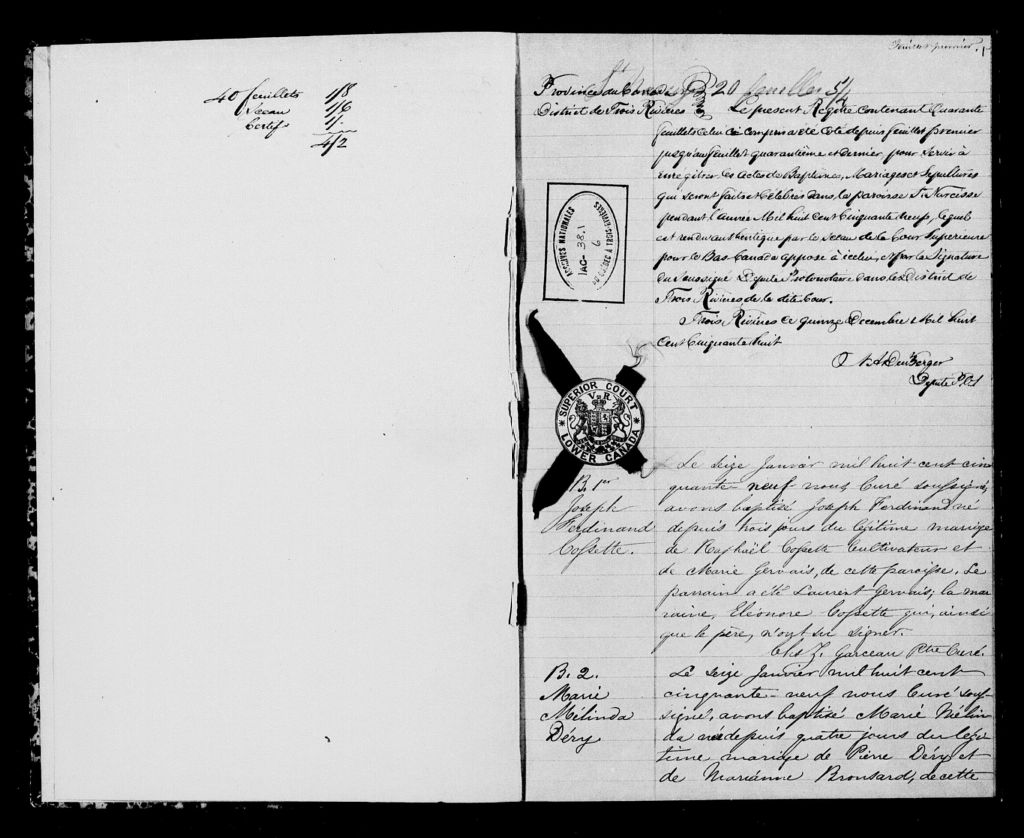 40 feuillets 1/8
Sceau 1/6
Certif 1/.
4/2
Feuillet premier. 1
Province du Canada
20 feuilles 5/
District de Trois Rivières
Le présent Régître contenant Quarante
feuillets celui ci compris a été coté depuis feuillet premier
jusqu'au feuillet quarantième et dernier pour servir à
enregîtrer les actes de Baptêmes, Mariages et Sépultures
qui seront faits et célébrés dans la paroisse St Narcisse
pendant l'année Mil huit cent Cinquante neuf, lequel
est rendu authentique par le sceau de la Cour Supérieure
pour le Bas Canada apposé à icelui, et par la Signature
du Soussigné Député Protonotaire dans le District de
Trois Rivières de la dite Cour.
Trois Rivières ce quinze Decembre Mil huit
cent Cinquante huit
Député P.C.S
ARCHIVES NATIONALES
IAC- 38.1
6
DU QUÉBEC À TROIS-RIVIÈRES
SUPERIOR COURT
V R
LOWER CANADA
B. 1er
Joseph
Ferdinand
Cossette.
Le seize Janvier mil huit cent cin
quante-neuf nous Curé soussigné,
avons baptisé Joseph Ferdinand né
depuis trois jours du légitime mariage
de Raphaël Cossette Cultivateur et
de Marie Gervais, de cette paroisse. Le
parrain a été Laurent Gervais; la mar
raine, Eléonore Cossette qui, ainsi
que le père, n'ont su signer.
Chs Z. Garceau Ptre Curé.
B. 2.
Marie
Mélinda
Déry
Le seize Janvier mil huit cent
cinquante-neuf nous Curé sous-
signé, avons baptisé Marie Mélin
da née depuis quatre jours du légi
time mariage de Pierre Déry et
de Marianne Bronsard, de cette